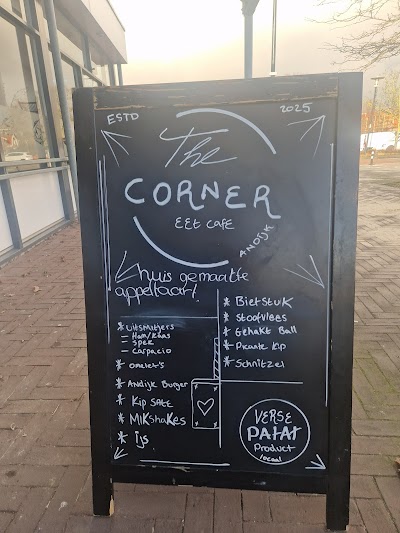 ESTD 2025
The
CORNER
EEt CAFE
ANDIJK
huis gemaakte
appeltaart!
* Uitsmijters
- Ham/Kaas
- Spek
- Carpacio
* omelet's
* Andijk Burger
* Kip SATE
* MilKshaKes
* ijs
* BiefstuK
* Stoofvlees
* Gehakt Ball
* Pikante Kip
* Schnitzel
VERSE
PATAT
Product
locaal